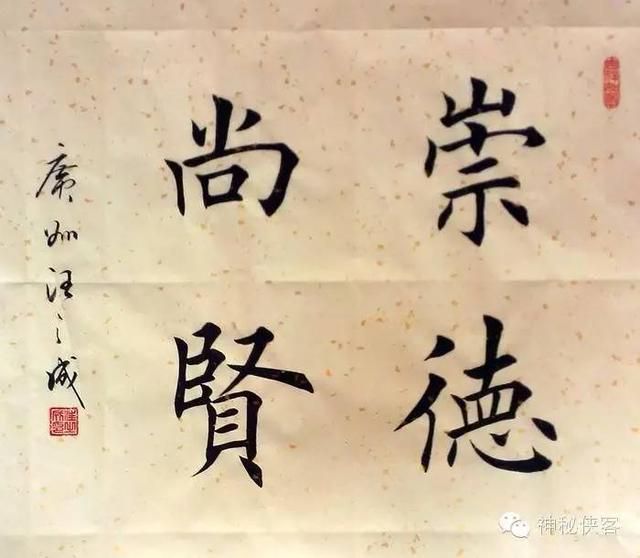 崇德
尚賢
廣州汪之成
神秘侠客